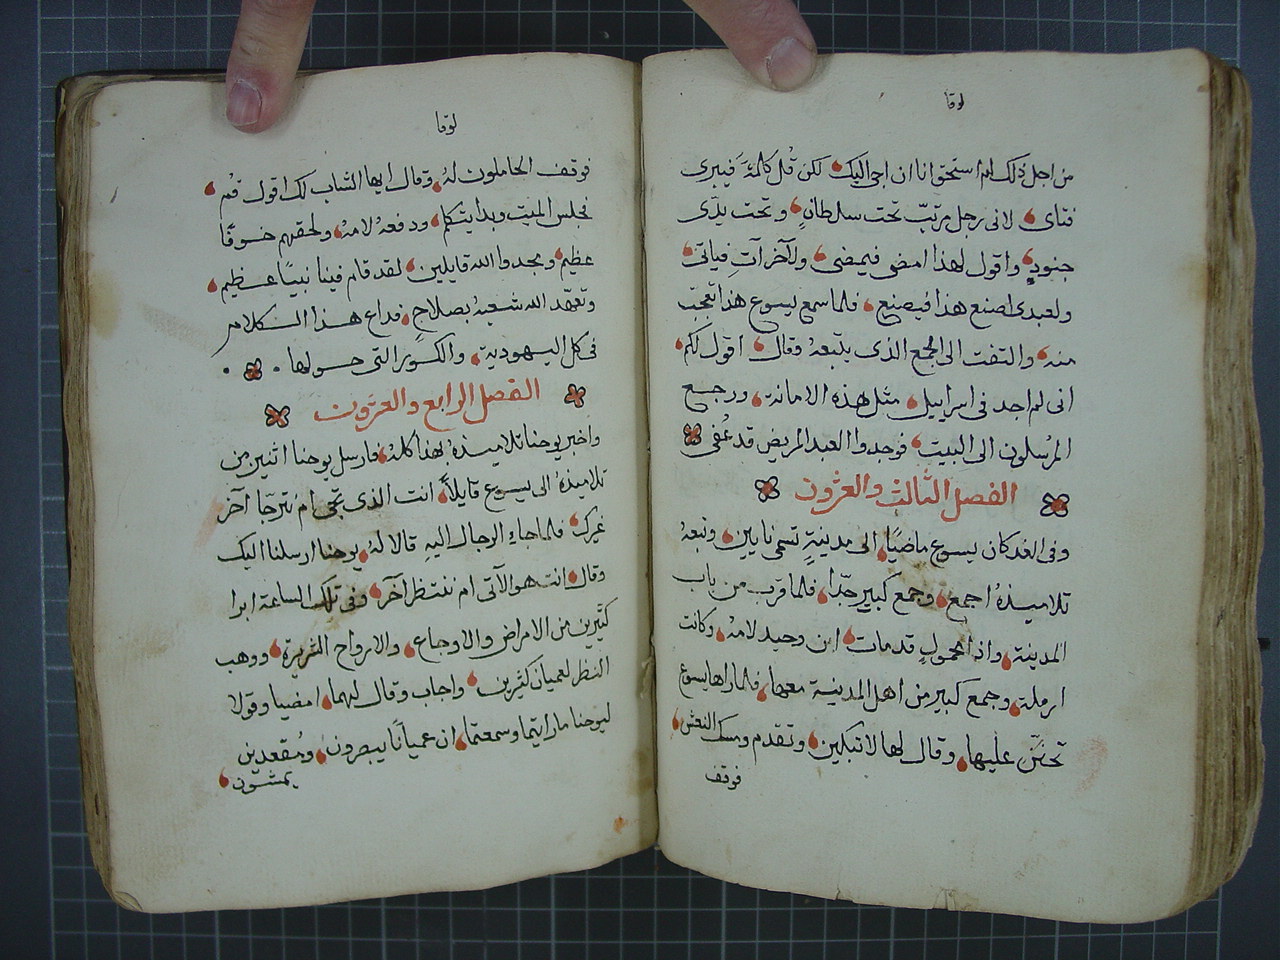 لوقا
من اجل ذلك لم استحق انا ان اجي اليك لكن قُل كلمةً فيبرى
فتاى لانى رجل مرتبّ تحت سلطانٍ وتحت يدَى
جنودٍ واقول لهذا امضى فيمضى ولآخر آتِ فياتى
ولعبدى اصنع هذا فيصنع فلما سمع يسوع هذا تعجّب
منه والتفت الى الجمع الذى يتبعهُ وقال اقول لكم
انى لم اجد فى اسراييل مثل هذه الامانه ورجع
المرُسلون الى البيت فوجدوا العبد المريض قد عُفى
الفصل الثالث والعشرون
وفى الغد كان يسوع ماضيًا الى مدينةٍ تسمى نايين وتبعهُ
تلاميذهُ اجمع وجمع كبير جدًا فلما قرب من باب
المدينة واذا محمول قد مات ابن وحيد لامهُ وكانت
ارملة وجمع كبير من اهل المدينة معها فلما راها يسوع
تحنّن عليها وقال لها لا تبكين وتقدم ومسك النعش
فوقف
لوقا
فوقف الحاملون لهُ وقال ايها الشاب لك اقول قُم
فجلس الميت وبدا يتكلم ودفعهُ لامهُ ولحقهم خوفًا
عظيم ومجدوا الله قايلين لقد قام فينا نبيًا عظيم
وتعهّد الله شعبهُ بصلاحٍ فذاع هذا الكلام
فى كل اليهودية والكور التى حولها
الفصل الرابع والعشرون
واخبر يوحنا تلاميذهُ بهذا كلهُ فارسل يوحنا اثنين من
تلاميذهُ الى يسوع قايلاً انت الذى تجى ام نترجّا آخر
غيرك فلما جاء الرجال اليهِ قالا لهُ يوحنا ارسلنا اليك
وقال انت هو الآتى ام ننتظر آخر وفى تلك الساعة ابرا
كثيرين من الامراض والاوجاع والارواح الشريرة ووهب
النظر لعميان كثيرين واجاب وقال لهما امضيا وقولا
ليوحنا ما رايتما وسمعتما ان عميانًا يبصرون ومُقعدين
يمشون